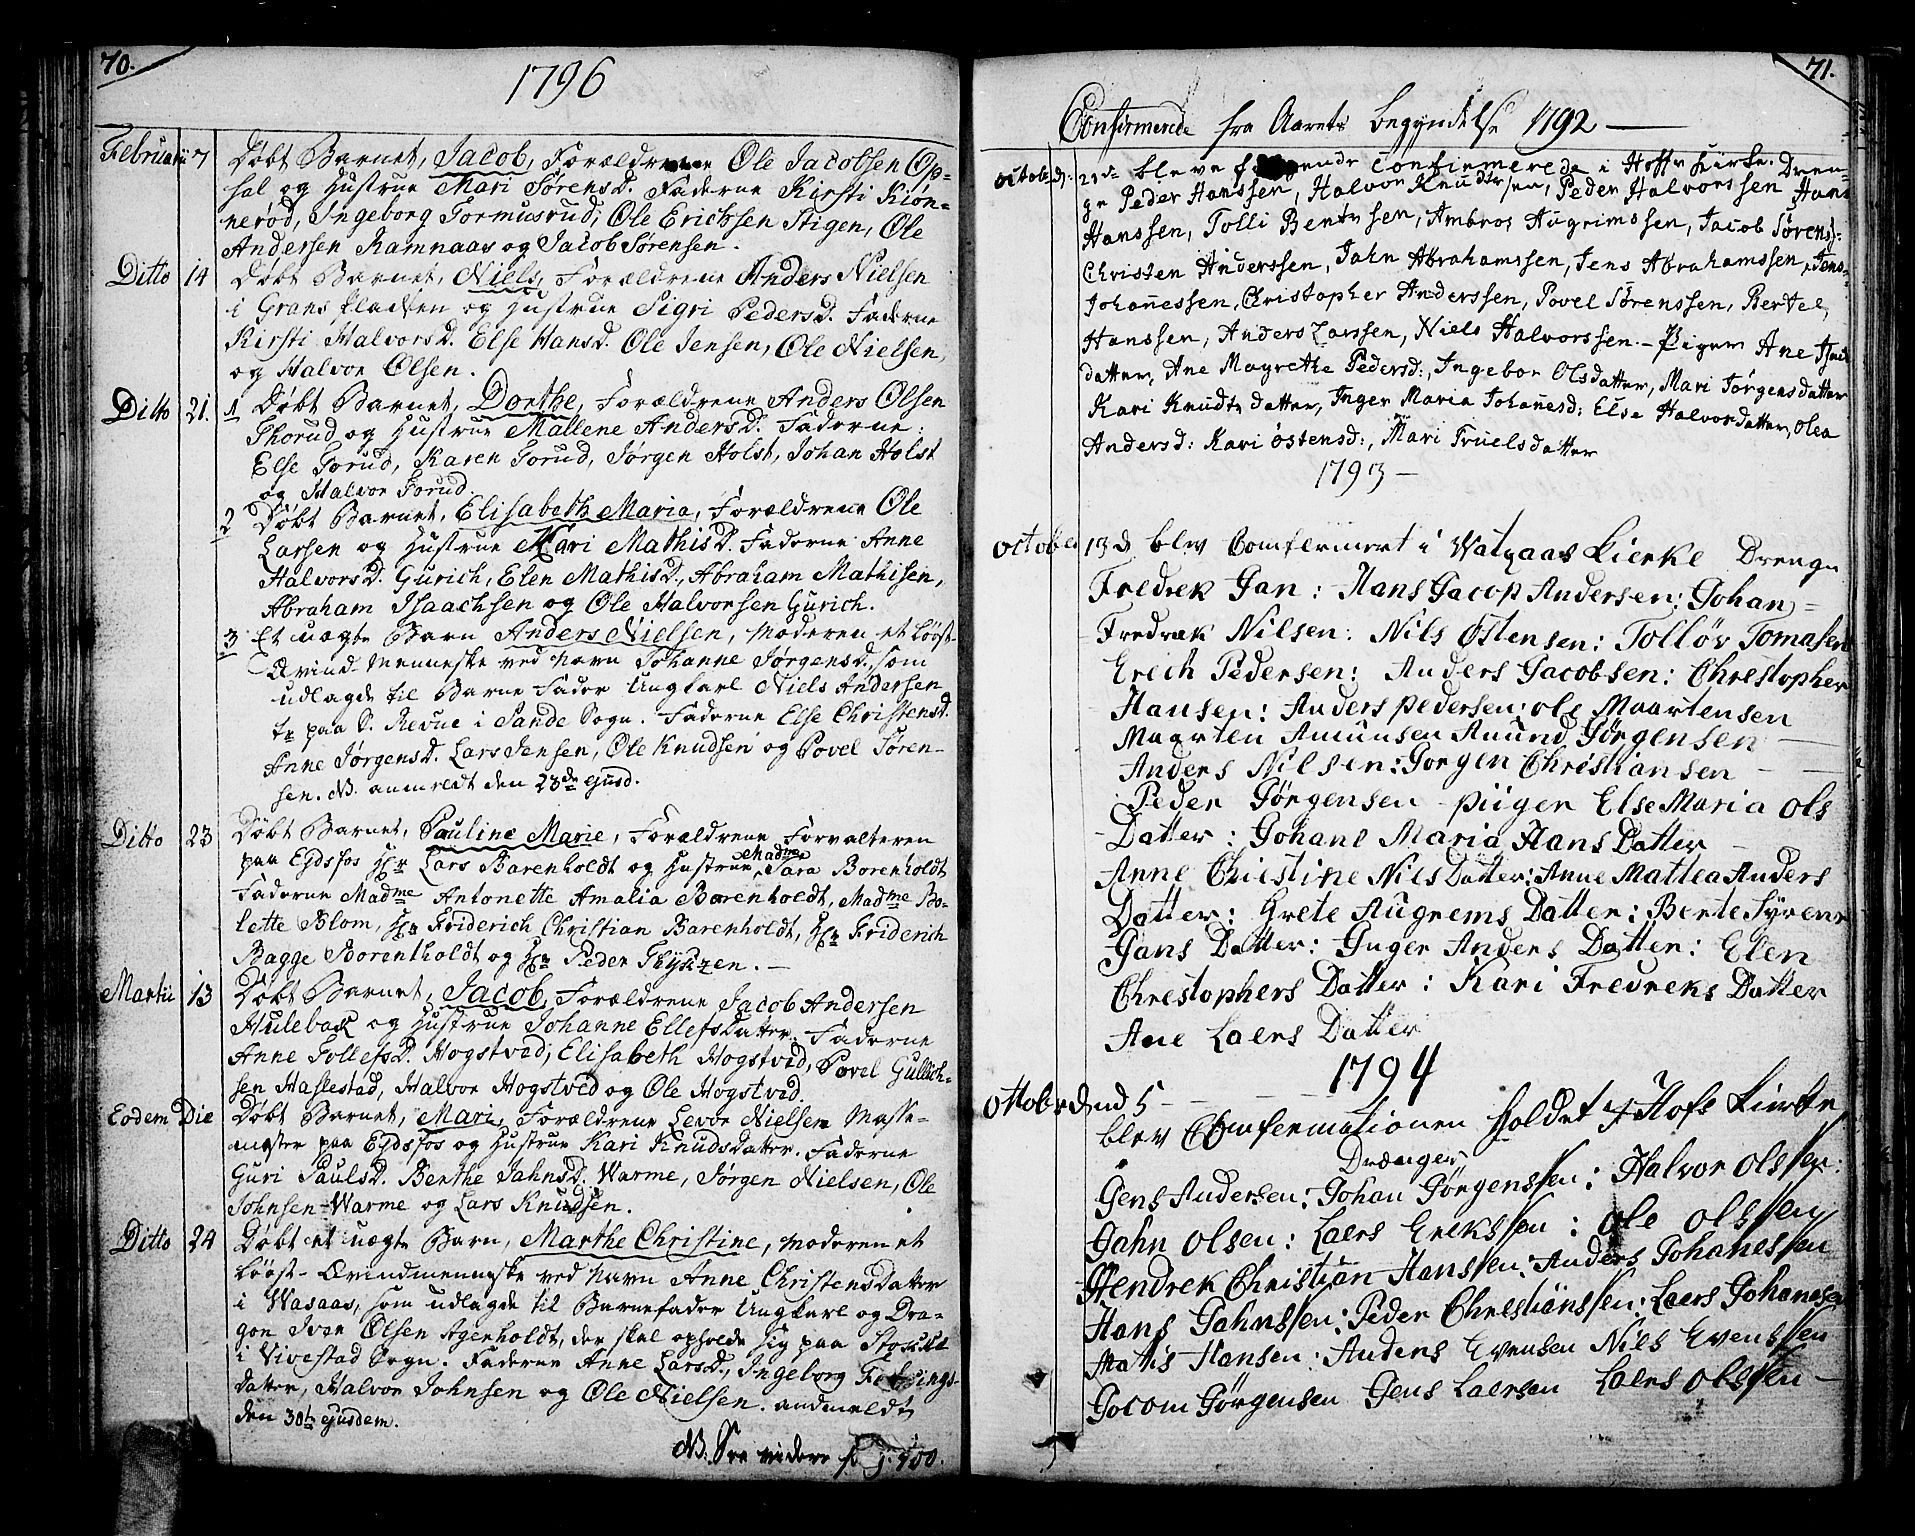 70.
1796
Februarii 7 Døbt Barnet, Jacob, Forældrene Ole Jacobsen Op=
sal og Hustrue Mari Sørensd. Faderne Kirsti Kiøn=
nerød, Ingeborg Tormusrud, Ole Erichsen Stigen, Ole
Andersen Ramnaas og Jacob Sørensen.
Ditto 14 Døbt Barnet, Niels, Forældrene Anders Nielsen
i Grans fladen og Hustrue Sigri Pedersd. Faderne
Kirsti Halvorsd. Else Hansd. Ole Jensen, Ole Nielsen,
og Halvor Olsen.
Ditto 21. 1 Døbt Barnet, Dorthe, Forældrene Anders Olsen
Thorud og Hustrue Mallene Andersd. Faderne:
Else Torud, Karen Torud, Jørgen Holst, Johan Holst
og Halvor Torud.
2 Døbt Barnet, Elisabeth Maria, Forældrene Ole
Larsen og Hustrue Kari Mathisd. Faderne Anne
Halvorsd. Gurich, Elen Mathisd., Abraham Mathisen,
Abraham Isaachsen og Ole Halvorsen Gurich.
3 Et uægte Barn Anders Nielsen, Moderen et løøst
Qvind-Menneske ved Navn Johanne Jørgensd. som
udlagde til Barne Fader Ungkarl Niels Andersen
tr paa S. Revue i Sande Sogn. Faderne Else Christensd.
Anne Jørgensd. Lars Jensen, Ole Knudsen og Povel Søren=
sen. NB. anmeldt den 23de ejusd.
Ditto 23 Døbt Barnet, Pauline Marie, Forældrene Forvalteren
paa Eydsfos Hr Lars Barenholdt og Hustrue Madme Sara Borenholdt
Faderne Madme Antonette Amalia Barenholdt, Madme Bo=
lette Blom, Hr Friderich Christian Barenholdt, Hr Friderich
Bagge Borentholdt og Hr Peder Thyszen. —
Martii 13 Døbt Barnet, Jacob, Forældrene Jacob Andersen
Hulebak og Hustrue Johanne Ellefsdatter. Faderne
Anne Tollefsd. Hogstved, Elisabeth Hogstved, Povel Gullich=
sen Haslestad, Halvor Hogstved og Ole Hogstved.
Eodem Die Døbt Barnet, Mari, Forældrene Levor Nielsen Masse=
mester paa Eydsfos og Hustrue Kari Knudsdatter. Faderne
Guri Paulsd. Berthe Jahnsd. Warme, Jørgen Nielsen, Ole
Johnsen Warme og Lars Knudsen.
Ditto 24 Døbt et uægte Barn, Marthe Christine, Moderen et
løøst-Qvindmenneske ved Navn Anne Christensdatter
i Wasaas, som udlagde til Barnefader Ungkarl og Dra=
gon Iver Olsen Agerholdt, der skal opholde sig paa
i Vivestad Sogn. Faderne Anne Larsd., Ingeborg
datter, Halvor Johnsen og Ole Nielsen. anmeldt
den 30te ejusdem.
NB. See videre p. 100.
71.
Confirmerede fra Aarets begyndelse 1792 —
October d: 21de bleve følgende Confirmerede i Hoffs Kirke. Dren=
ge Peder Hanssen, Halvor Knudtssen, Peder Halvorssen Hans
Hanssen, Tolli Bentssen, Ambros Augrimssen, Jacob Sørens:
Christen Anderssen, Jahn Abrahamssen, Jens Abrahamssen, Jens
Johannessen, Christopher Anderssen, Povel Sørenssen, Bertel
Hanssen, Anders Larssen, Niels Halvorssen — Piger Ane
datter, Ane Magrethe Pedersd:, Ingebor Olsdatter, Mari Jørgensdatter
Kari Knudts datter, Inger Maria Johanesd: Else Halvorsdatter, Olea
Andersd: Kari Østensd:, Mari Truelsdatter
1793 —
October 13 d blev Comfermert i Vatgaas Kierke Drenge
Fredrek Gan: Hans Jacop Andersen: Johan =
Fredrek Nilsen: Nils Ostensen: Tolløv Tomasen
Erich Pedersen: Anders Jacobsen: Chrestopher
Hansen: Anders pedersen: ole Maartensen
Maarten Amunsen Amund Jørgensen —
Anders Nilsen: Jorgen Christiansen — —
Peder Jørgensen - piiger Else Maria Ols
Datter: Johane Maria Hans Datter —
Anne Chrestine Nils Datter: Anne Mattea Anders
Datter: Grete Augrems Datter: Berte Syrens
Jans Datter: Inger Anders Datter: Elen
Chrestophers Datter: Kari Fredreks Datter
Ane Laers Datter
1794
ottober dend 5 — — —
blev Comfermationen holdet i Hofs Kierke
Drænger
Jens Andersen: Johan Jørgenssen: Halvor olssen:
Jahn olsen: Laers Erekssen: ole olssen
Hendrek Christian Hanssen: Anders Johanessen
Hans Jahnssen: Peder Chrestianssen: Laers Johanesen
Matis Hansen: Anders Evensen Nils Evenssen
Jocom Jørgensen Jens Laersen Laers olssen —